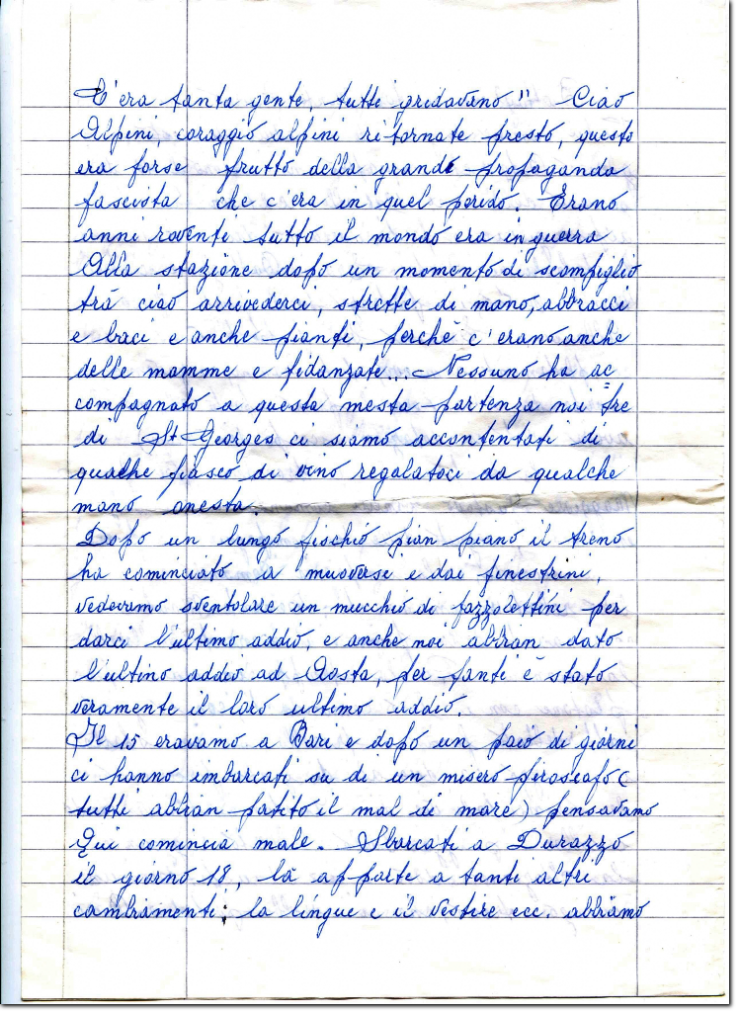 C'era tanta gente, tutti gridavano" Ciao
Alpini, coraggio alpini ritornate presto, questo
era forse frutto della grande propaganda
fascista che c'era in quel perido. Erano
anni roventi tutto il mondo era in guerra
Alla stazione dopo un momento di scompiglio
trà ciao arrivederci, strette di mano, abbracci
e baci e anche pianti, perchè c'erano anche
delle mamme e fidanzate... Nessuno ha ac=
compagnato a questa mesta partenza noi tre
di St Georges ci siamo accontentati di
qualche fiasco di vino regalatoci da qualche
mano onesta.
Dopo un lungo fischio pian piano il treno
ha cominciato a muoverse e dai finestrini,
vedevamo sventolare un mucchio di fazzolettini per
darci l'ultimo addio, e anche noi abbian dato
l'ultino addio ad Aosta, per tanti è stato
veramente il loro ultimo addio.
Il 15 eravamo a Bari e dopo un paio di giorni
ci hanno imbarcati su di un misero piroscafo (
tutti abbian patito il mal di mare) pensavamo
Qui comincia male. Sbarcati a Durazzo
il giorno 18, là apparte a tanti altri
cambiamenti; la lingue e il vestire ecc. abbiamo